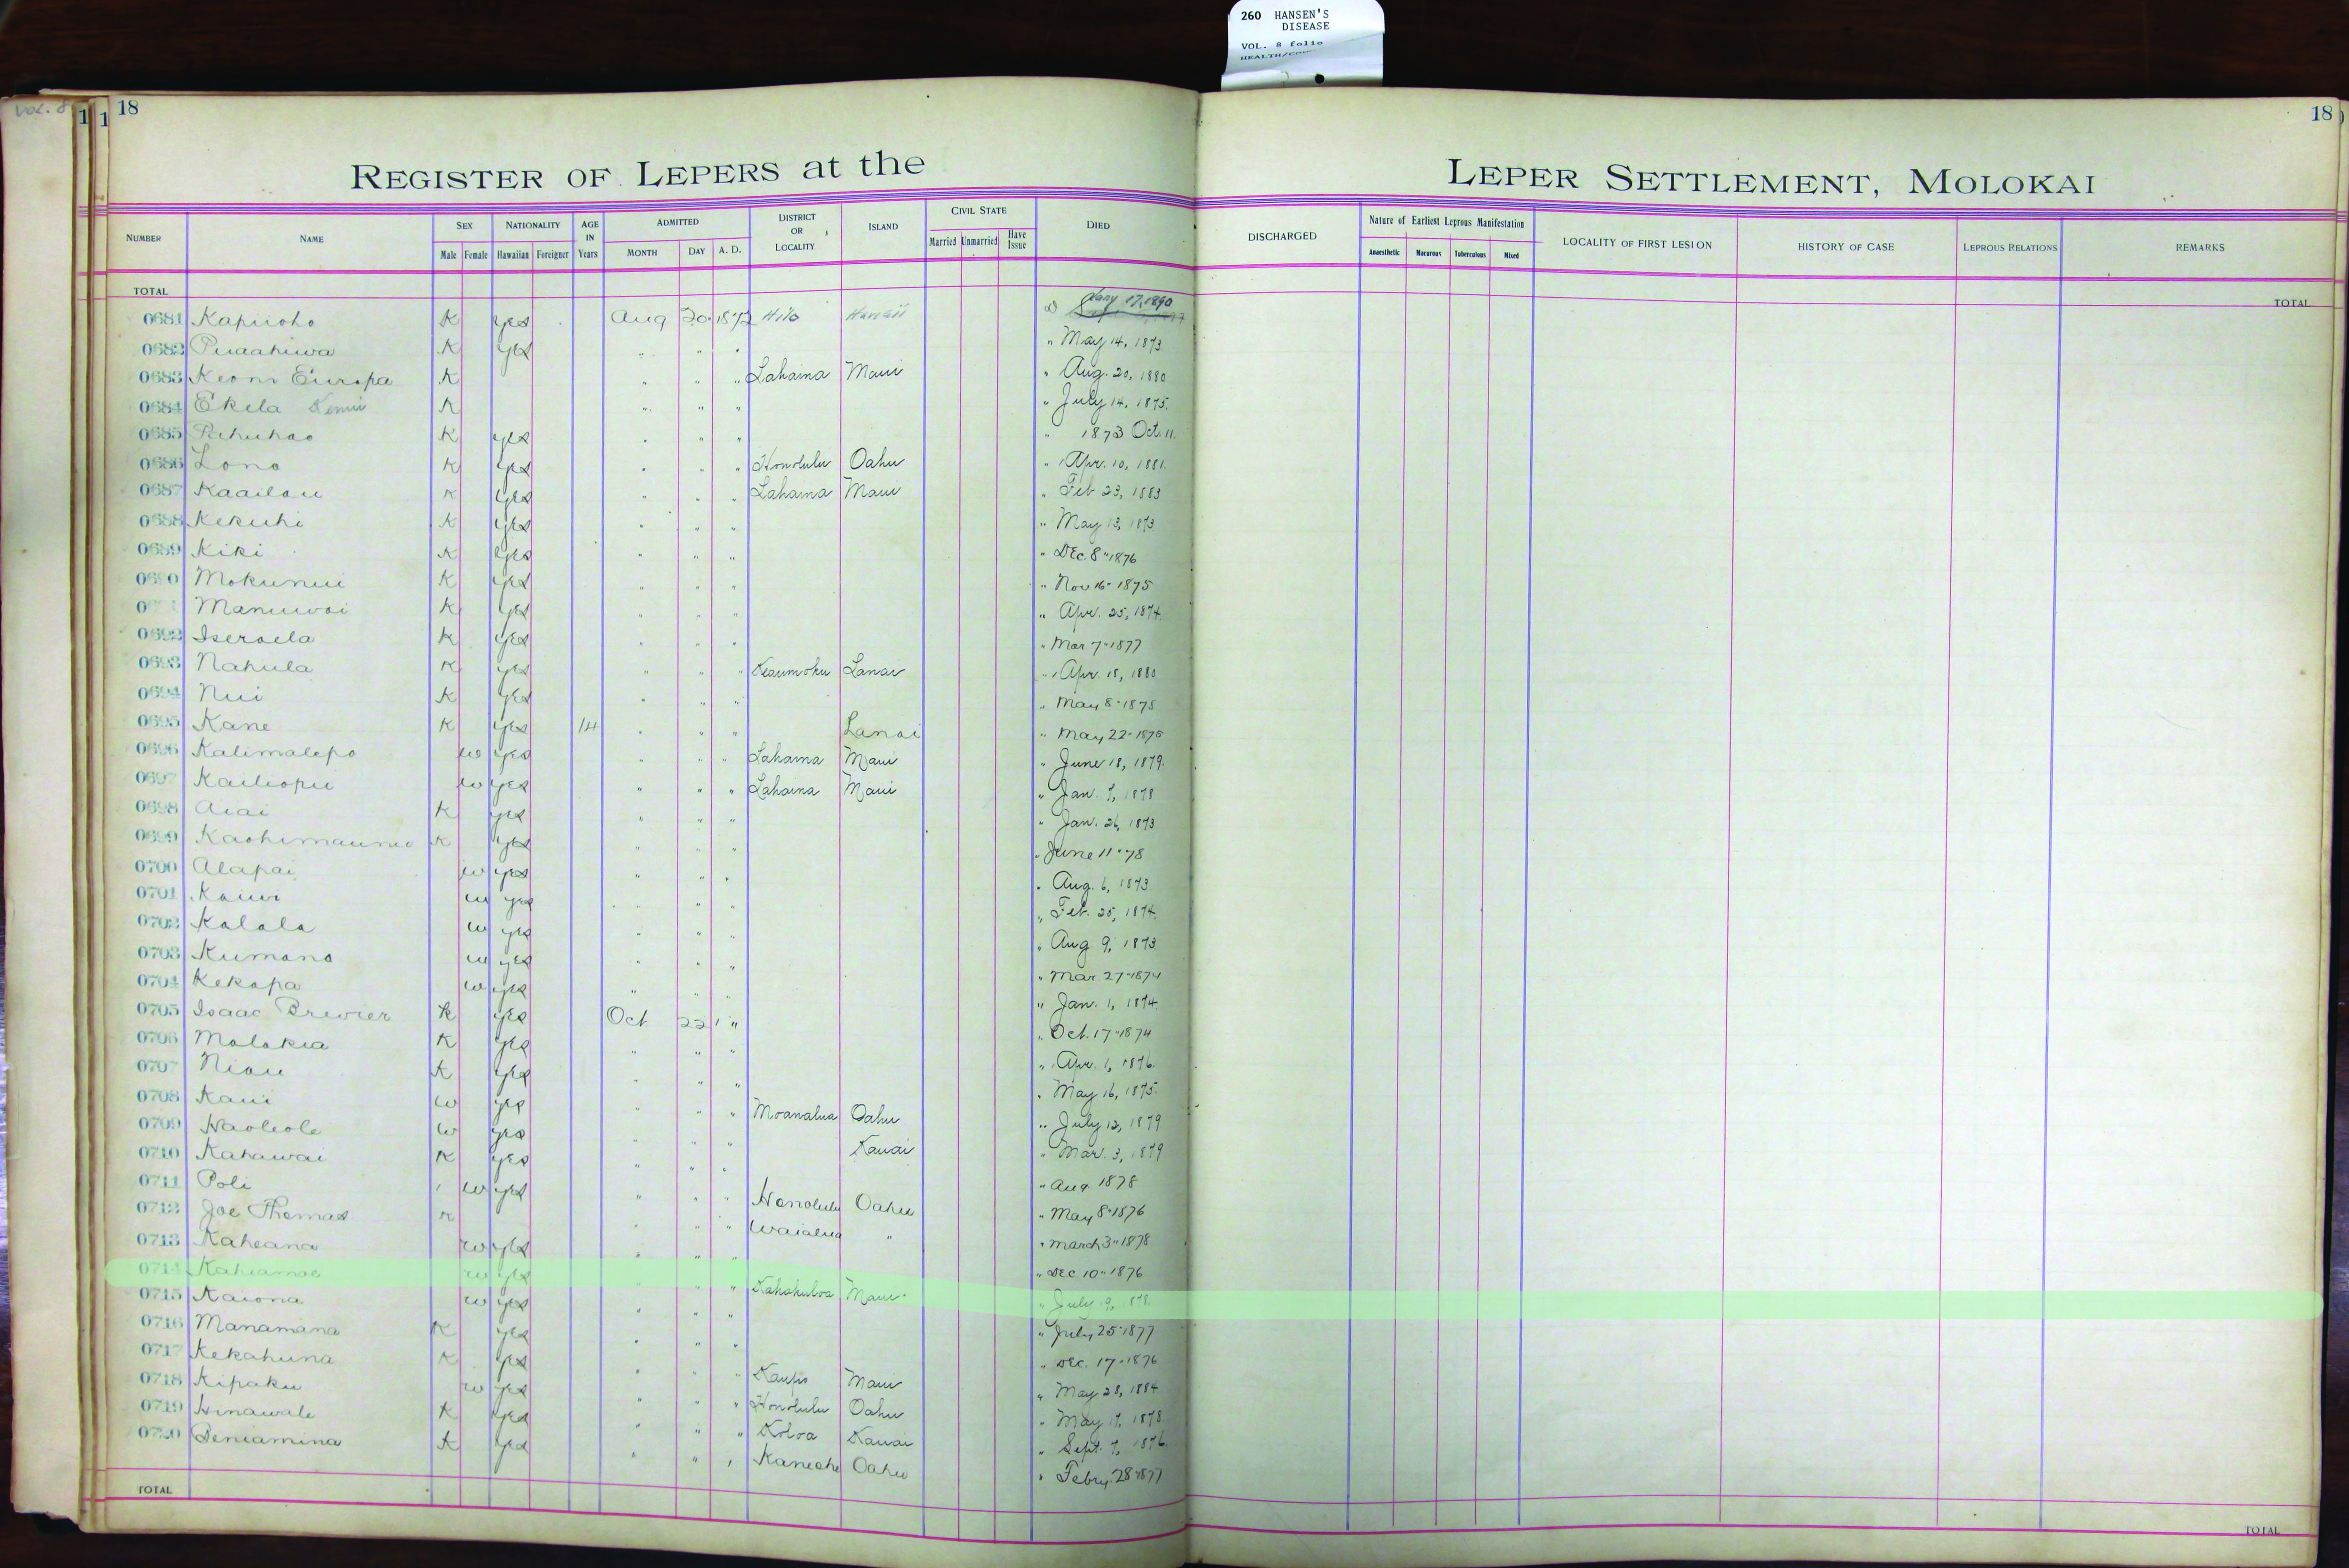 260 HANSEN'S
DISEASE
VOL. 8 folio
VOL. 8
1 1 18
18
REGISTER OF LEPERS at the LEPER SETTLEMENT, MOLOKAI
NUMBER NAME SEX Male Female NATIONALITY Hawaiian Foreigner AGE IN Years ADMITTED MONTH DAY A. D. DISTRICT OR LOCALITY ISLAND CIVIL STATE Married Unmarried Have Issue DIED DISCHARGED Nature of Earliest Leprous Manifestation Anaesthetic Macurous Tuberculous Mixed LOCALITY OF FIRST LESION HISTORY OF CASE LEPROUS RELATIONS REMARKS
TOTAL TOTAL
0681 Kapuoho K yes Aug 20 1872 Hilo Hawaii Jany 17, 1890
0682 Puaahiwa K yes " " " " May 14, 1873
0683 Keoni Europa K " " " Lahaina Maui " Aug. 20, 1880
0684 Ekela K " " " " July 14, 1875.
0685 Pahuhao K yes " " " " 1873 Oct. 11.
0686 Lono K yes " " " Honolulu Oahu " Apr. 10, 1881.
0687 Kaailau K yes " " " Lahaina Maui " Feb 23, 1883
0688 Kekuhi K yes " " " " May 13, 1873
0689 Kiki K yes " " " " Dec. 8" 1876
0690 Mokunui K yes " " " " Nov 16" 1875
Manuwai K yes " " " " Apr. 25, 1874.
0692 Iseraela K yes " " " " Mar 7" 1877
0693 Nahula K yes " " " Keaumoku Lanai " Apr. 18, 1880
0694 Nui K yes " " " " May 8" 1875
0695 Kane K yes 14 " " " Lanai " May 22" 1878
0696 Kalimalepo w yes " " " Lahaina Maui " June 18, 1879.
0697 Kailiopu w yes " " " Lahaina Maui " Jan. 7, 1878
0698 Aiai K yes " " " " Jan. 26, 1873
0699 K yes " " " " June 11" 78
0700 Alapai w yes " " " " Aug. 6, 1873
0701 Kauwi w yes " " " " Feb. 25, 1874.
0702 Kalala w yes " " " " Aug 9, 1873.
0703 Kumano w yes " " " " Mar 27" 1874
0704 Kekapa w yes " " " " Jan. 1, 1874.
0705 Isaac Brewier K yes Oct 22 " " Oct. 17" 1874
0706 Molokia K yes " " " " Apr. 1, 1876.
0707 Niau K yes " " " " May 16, 1875.
0708 Kaui w yes " " " Moanalua Oahu " July 12, 1879
0709 Haoleole w yes " " " Kauai " Mar. 3, 1879
0710 Kahawai K yes " " " " Aug 1878
0711 Poli w yes " " " Honolulu Oahu " May 8" 1876
0712 Joe Thomas K " " " Waialua " " March 3" 1878
0713 Kaheana w yes " " " " Dec. 10" 1876
0714 Kahiamoe w yes " " " Kahakuloa Maui " July 19, 1878.
0715 Kaiona w yes " " " " July 25" 1877
0716 Manamana K yes " " " " Dec. 17" 1876
0717 Kekahuna K yes " " " Kaupo Maui " May 28, 1884
0718 Kipaku w yes " " " Honolulu Oahu " May 17, 1878.
0719 Hinawale K yes " " " Koloa Kauai " Sept. 7, 1876.
0720 Beniamina K yes " " " Kaneohe Oahu " Febry. 28" 1877
TOTAL TOTAL